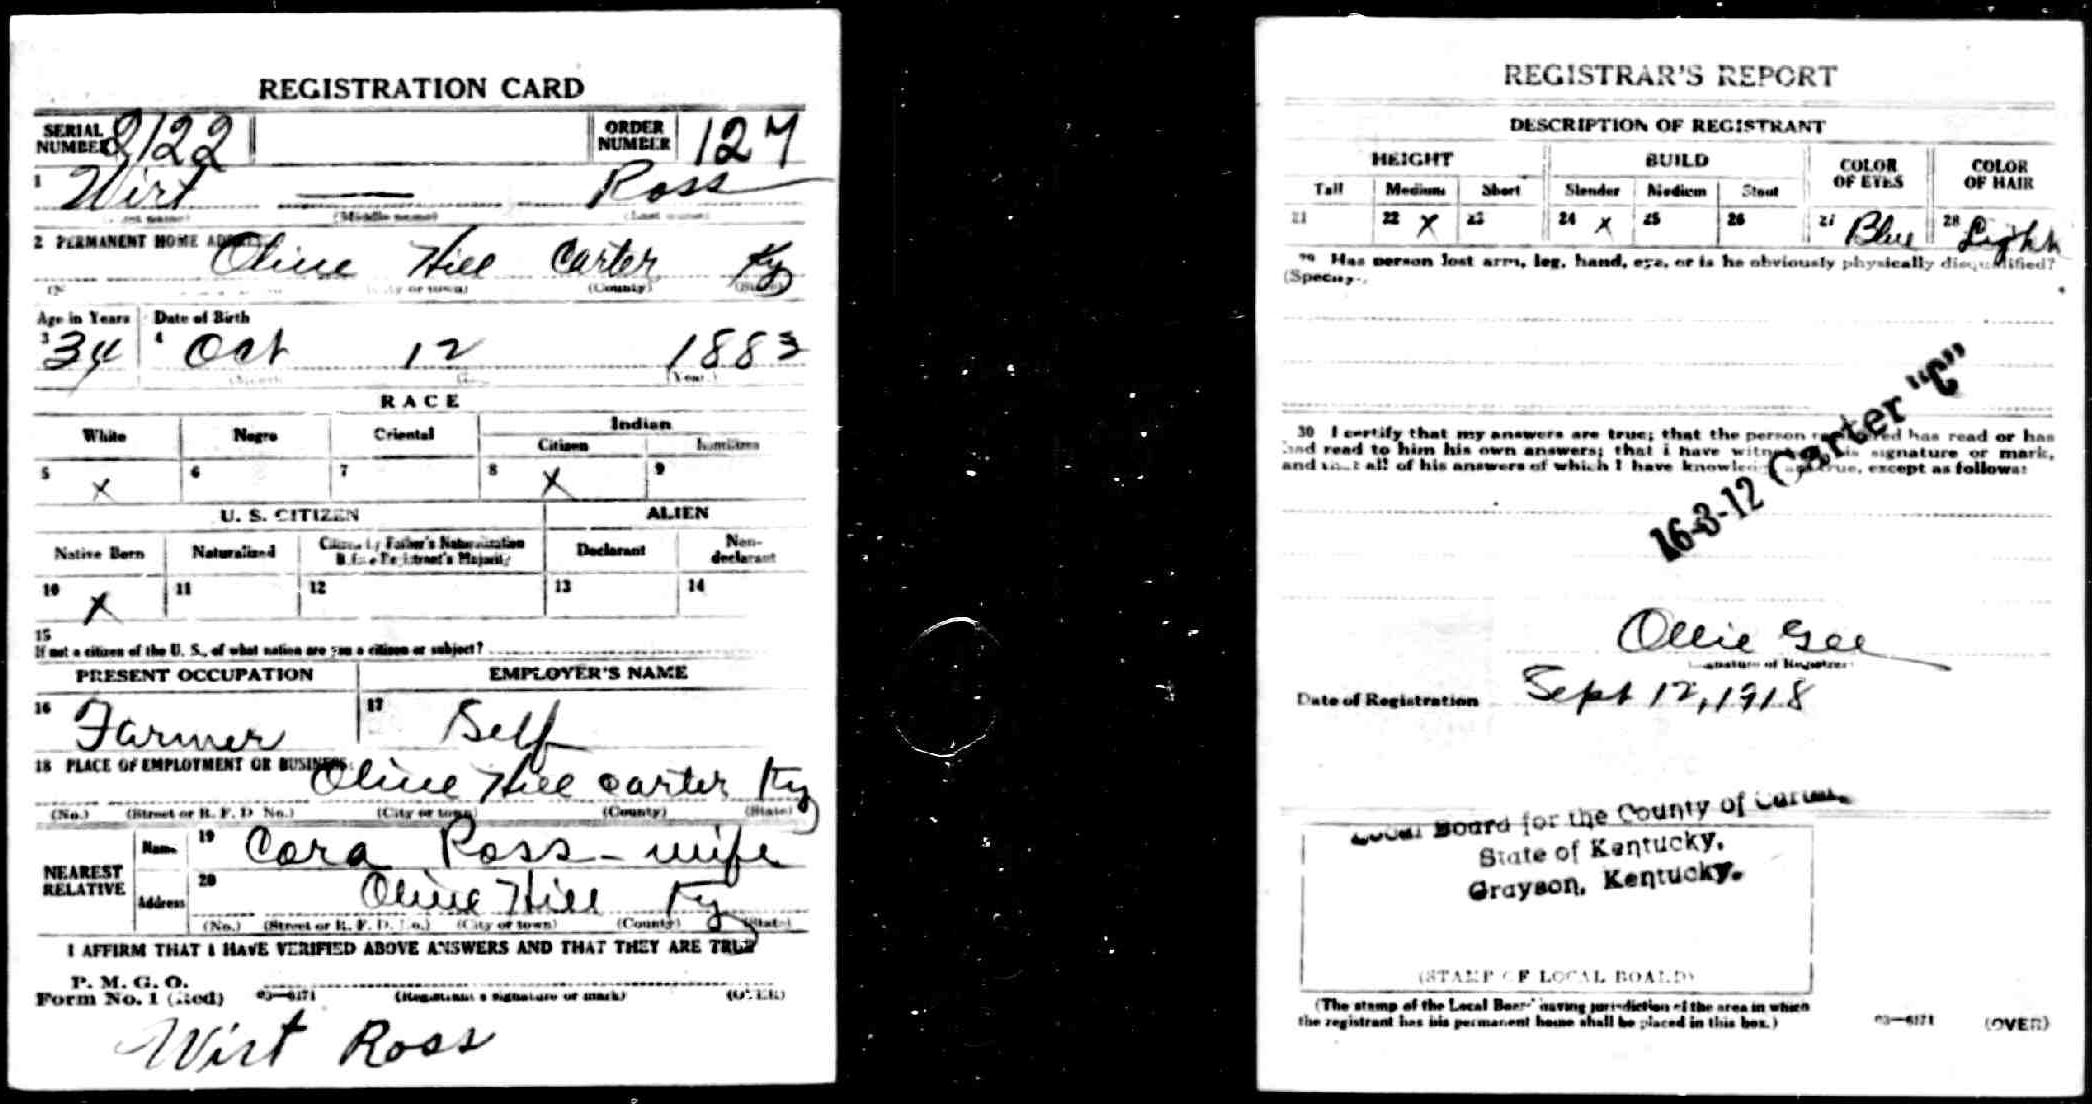 REGISTRATION CARD
SERIAL NUMBER 2122 ORDER NUMBER 127
1 Wirt — Ross
(Middle name) (Last name)
2 PERMANENT HOME ADDRESS
Olive Hill Carter Ky
(City or town) (County) (State)
Age in Years Date of Birth
3 34 4 Oct 12 1883
(Month) (Year)
RACE
White Negro Oriental Indian
Citizen
5 X 6 7 8 X 9
U. S. CITIZEN ALIEN
Native Born Naturalized Citizen by Father's Naturalization Before Registrant's Majority Declarant Non-declarant
10 X 11 12 13 14
15
If not a citizen of the U. S., of what nation are you a citizen or subject?
PRESENT OCCUPATION EMPLOYER'S NAME
16 Farmer 17 Self
18 PLACE OF EMPLOYMENT OR BUSINESS:
Olive Hill Carter Ky
(No.) (Street or R. F. D No.) (City or town) (County) (State)
NEAREST RELATIVE
Name 19 Cora Ross - wife
Address 20 Olive Hill Ky
(No.) (Street or R. F. D. No.) (City or town) (County) (State)
I AFFIRM THAT I HAVE VERIFIED ABOVE ANSWERS AND THAT THEY ARE TRUE
P. M. G. O.
Form No. 1 (Red) 03—6171 (Registrant's signature or mark) (OVER)
Wirt Ross
REGISTRAR'S REPORT
DESCRIPTION OF REGISTRANT
HEIGHT BUILD COLOR OF EYES COLOR OF HAIR
Tall Medium Short Slender Medium Stout
21 22 X 23 24 X 25 26 27 Blue 28 Light
29 Has person lost arm, leg, hand, eye, or is he obviously physically disqualified?
(Specify.)
30 I certify that my answers are true; that the person registered has read or has
had read to him his own answers; that I have witnessed his signature or mark,
and that all of his answers of which I have knowledge are true, except as follows:
16-3-12 Carter "C"
Ollie Gee
(Signature of Registrar)
Date of Registration Sept 12, 1918
Local Board for the County of Carter,
State of Kentucky,
Grayson, Kentucky.
(STAMP OF LOCAL BOARD)
(The stamp of the Local Board having jurisdiction of the area in which
the registrant has his permanent home shall be placed in this box.)
03—6171 (OVER)